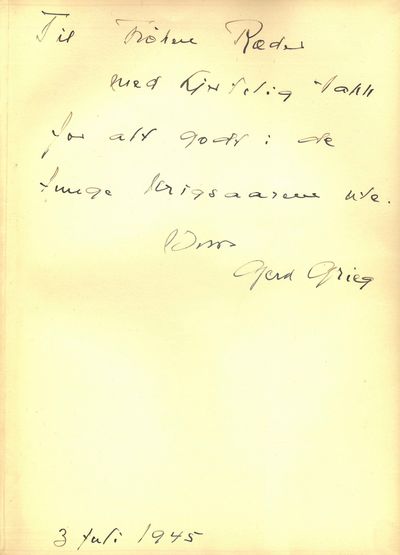 Til Frøken Ræder
med hjertelig takk
for alt godt i de
tunge krigsaarene ute.
Deres
Gerd Grieg
3 juli 1945